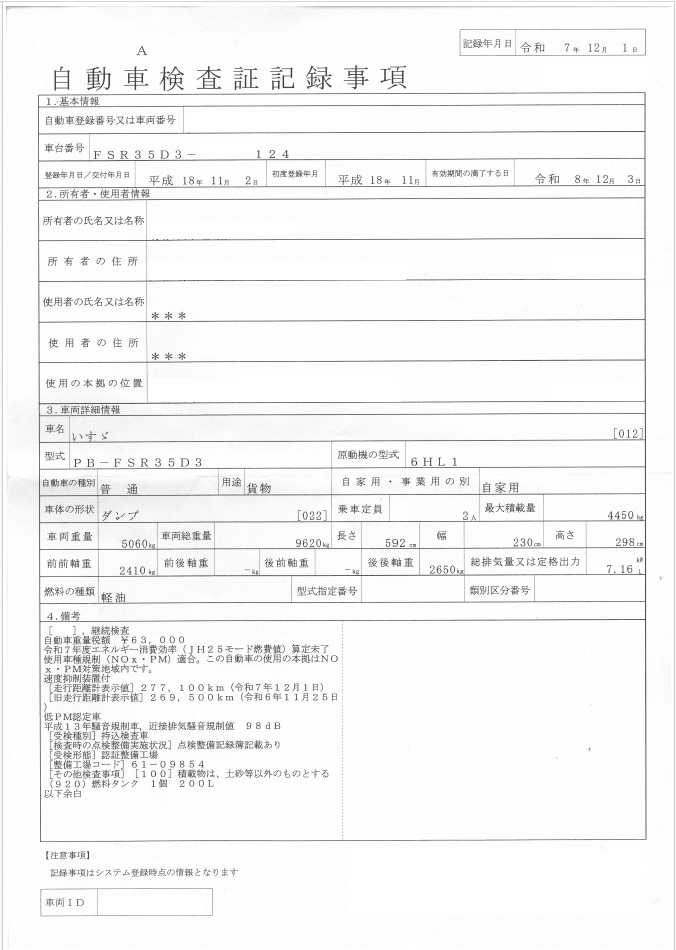 記録年月日 令和 7年 12月 1日
A
自動車検査証記録事項
1.基本情報
自動車登録番号又は車両番号
車台番号 FSR35D3− 124
登録年月日/交付年月日 平成 18年 11月 2日 初度登録年月 平成 18年 11月 有効期間の満了する日 令和 8年 12月 3日
2.所有者・使用者情報
所有者の氏名又は名称
所有者の住所
使用者の氏名又は名称 ＊＊＊
使用者の住所 ＊＊＊
使用の本拠の位置
3.車両詳細情報
車名 いすゞ [012]
型式 PB−FSR35D3 原動機の型式 6HL1
自動車の種別 普通 用途 貨物 自家用・事業用の別 自家用
車体の形状 ダンプ [022] 乗車定員 2人 最大積載量 4450kg
車両重量 5060kg 車両総重量 9620kg 長さ 592cm 幅 230cm 高さ 298cm
前前軸重 2410kg 前後軸重 −kg 後前軸重 −kg 後後軸重 2650kg 総排気量又は定格出力 7.16 kW L
燃料の種類 軽油 型式指定番号 類別区分番号
4.備考
[ ]，継続検査
自動車重量税額 ￥63，000
令和7年度エネルギー消費効率（JH25モード燃費値）算定未了
使用車種規制（NOx・PM）適合。この自動車の使用の本拠はNO
x・PM対策地域内です。
速度抑制装置付
[走行距離計表示値]277，100km（令和7年12月1日）
[旧走行距離計表示値]269，500km（令和6年11月25日
）
低PM認定車
平成13年騒音規制車，近接排気騒音規制値 98dB
[受検種別]持込検査車
[検査時の点検整備実施状況]点検整備記録簿記載あり
[受検形態]認証整備工場
[整備工場コード]61−09854
[その他検査事項][100]積載物は、土砂等以外のものとする
（920）燃料タンク 1個 200L
以下余白
【注意事項】
記録事項はシステム登録時点の情報となります
車両ID